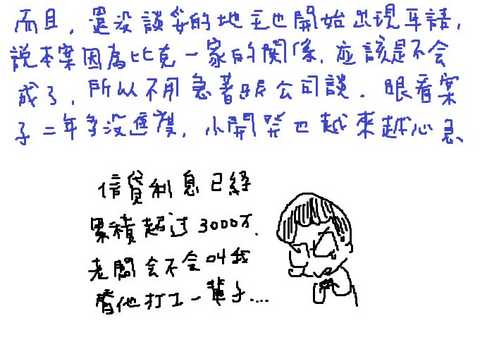 而且,還沒談妥的地主也開始出現耳語,
說本案因為比克一家的關係,應該是不會
成了,所以不用急著跟公司談.眼看案
子二年多沒進度,小開開也越來越心急、
信貸利息已經
累積超过3000万.
老闆会不会叫我
替他打工一輩子....